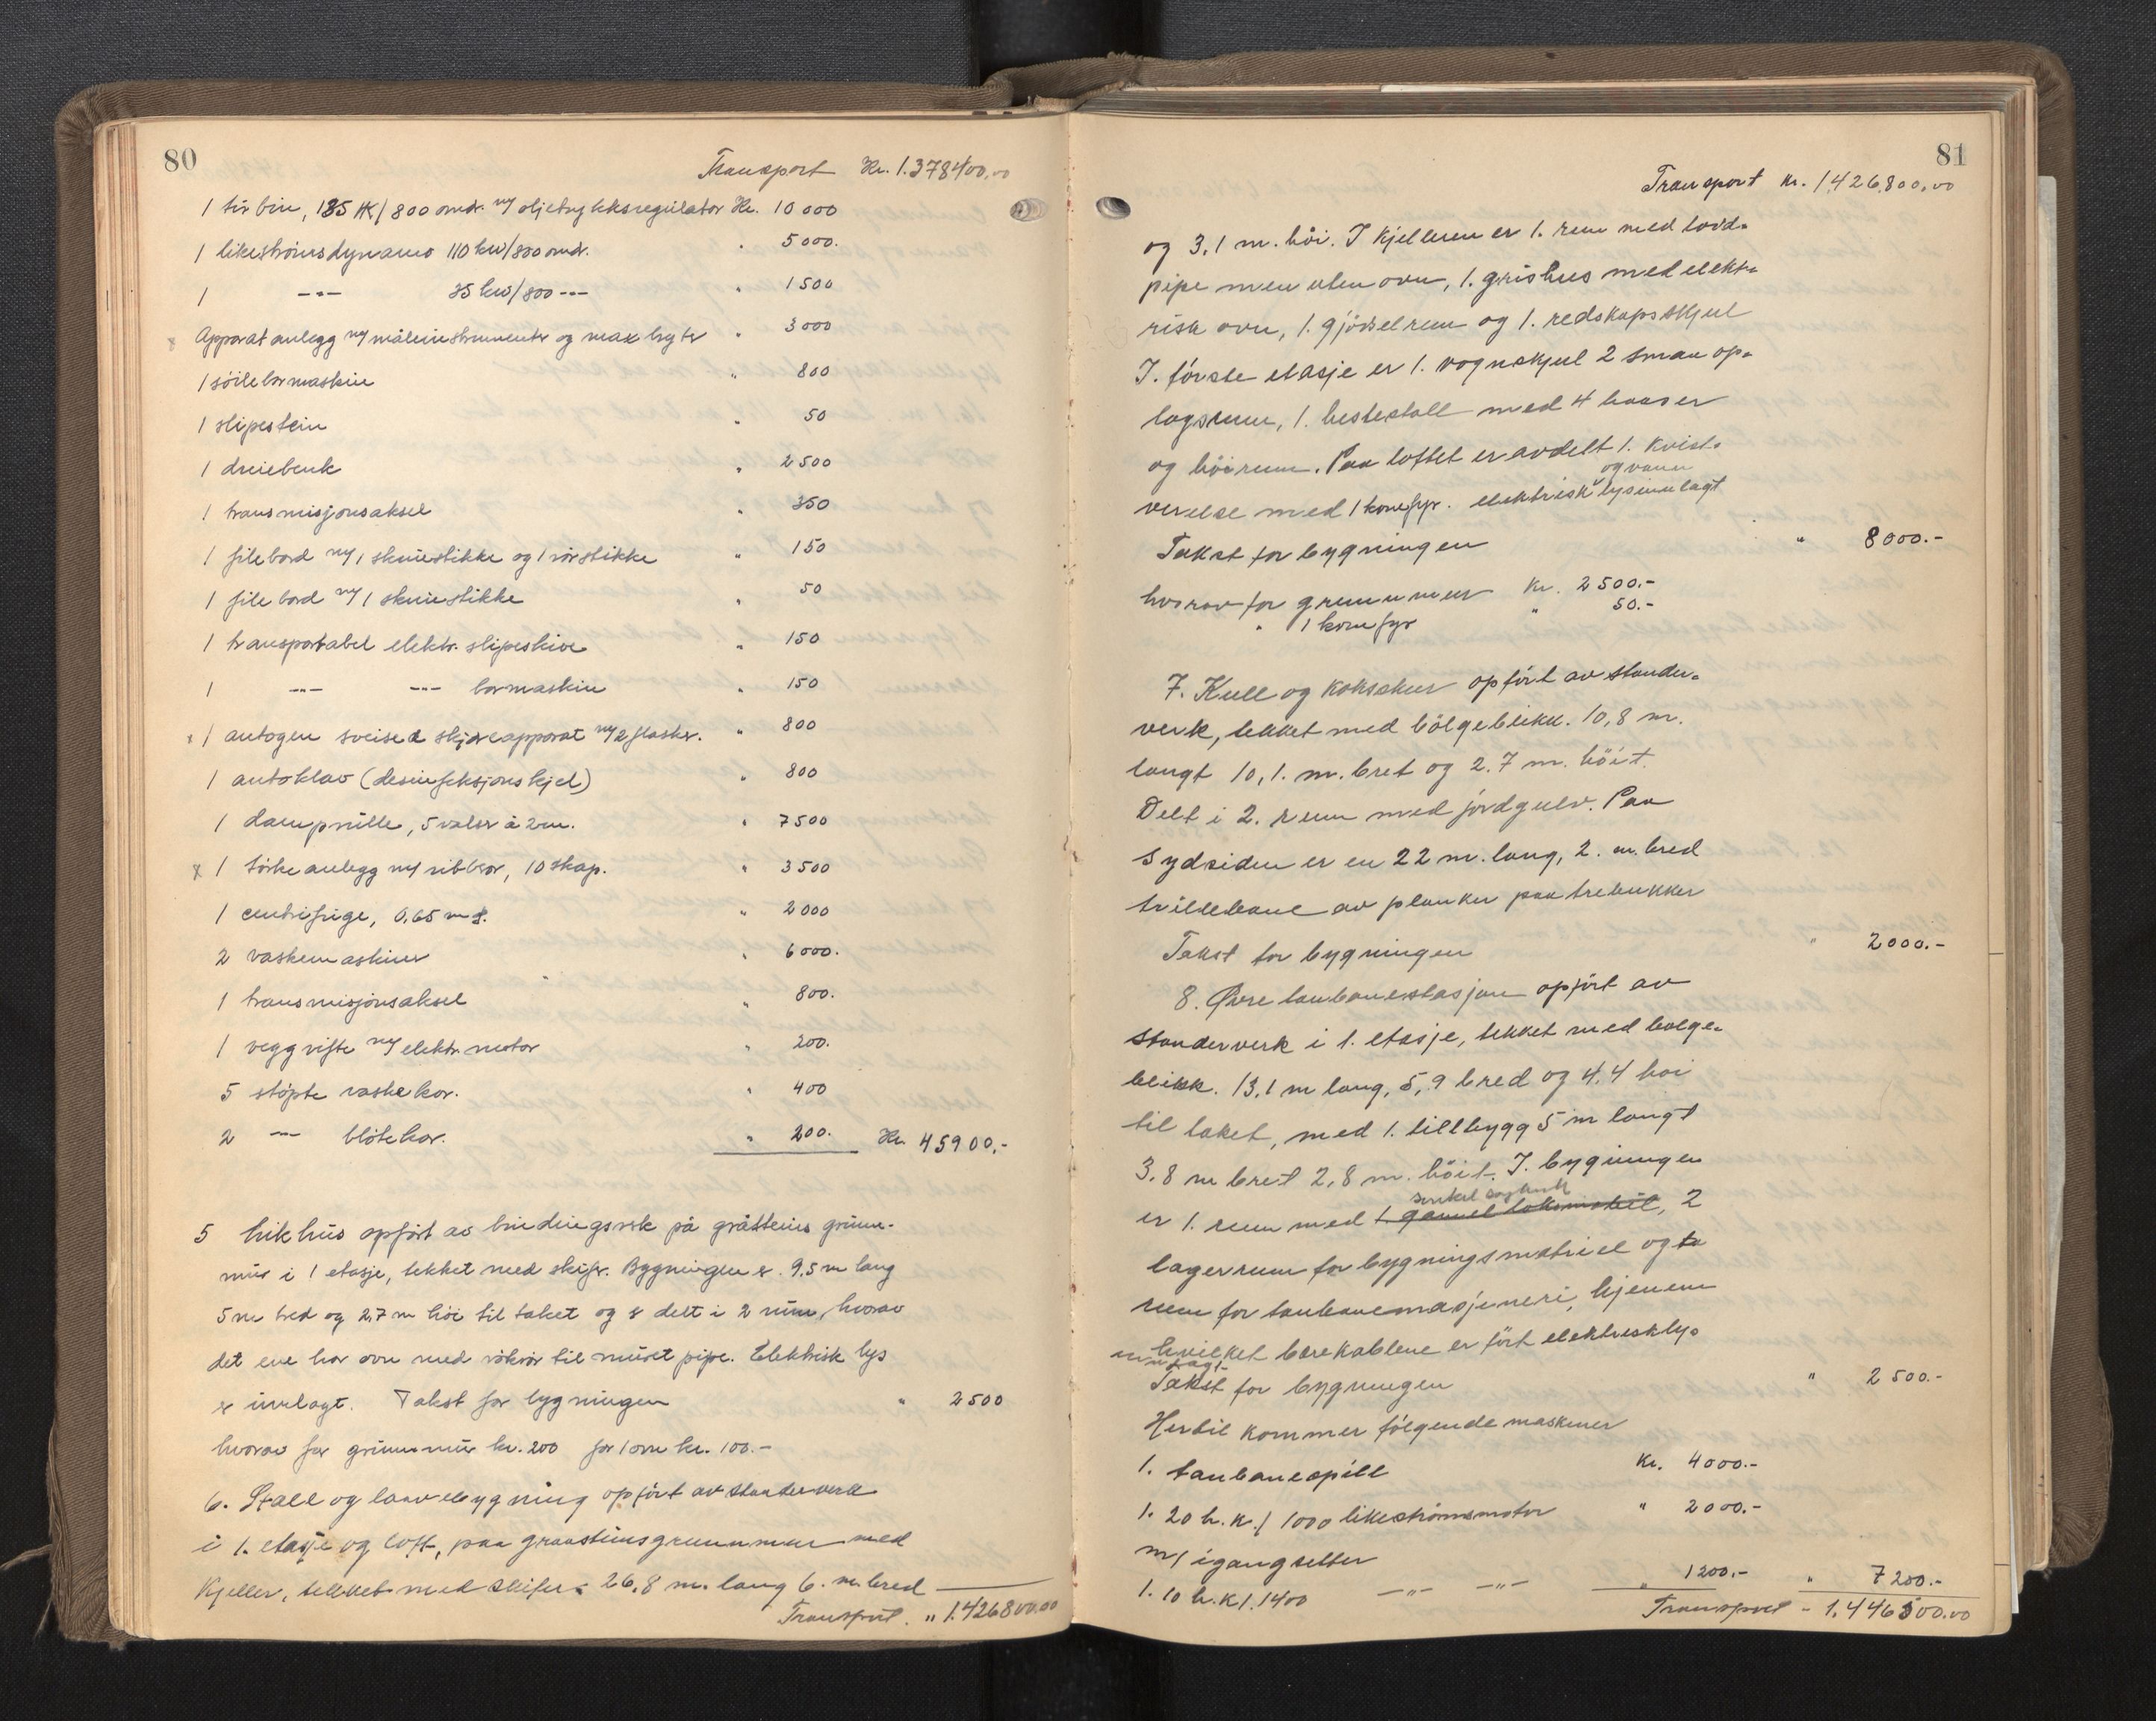 80
Transport Kr. 1.378400,00
1 turbin, 185 HK/800 omdr. m/ oljetrykksregulator Kr. 10 000
1 likestrømsdynamo 110 kw/800 omdr. " 5000.
1 -"- 35 kw/800 -"- " 1500
Apparatanlegg m/ måleinstrumenter og max bryter " 3000
1 söileboremaskin " 800
1 slipestein " 50
1 dreiebenk " 2500
1 transmisjonsaksel " 350
1 filebord m/ 1 skruestikke og 1 rörstikke " 150
1 filebord m/ 1 skruestikke " 50
1 transportabel elektr. slipeskive " 150
1 -"- -"- bormaskin " 150
1 autogen sveise & skjæreapparat m/ 2 flasker. " 800
1 autoklav (desinfeksjonskjel) " 800
1 damprulle, 5 valser à 2 m. " 7500
x 1 törkeanlegg m/ ribberör, 10 skap. " 3500
1 centrifuge, 0,65 m " 2000
2 vaskemaskiner " 6000.
1 transmisjonsaksel " 800.
1 veggvifte m/ elektr. motor " 200.
5 støpte vaskekar. " 400
2 -"- blötekar. " 200. Kr. 45900,-
5 likhus opfört av bindingsverk på gråsteins grunn-
mur i 1 etasje, tekket med skifer. Bygningen er 9,5 m lang
5 m bred og 2,7 m höi til taket og er delt i 2 rum, hvorav
det ene har ovn med rökrör til muret pipe. Elektrisk lys
er innlagt. Takst for bygningen " 2500
hvorav for grunnmur kr. 200 for 1 ovn kr. 100.-
6. Stall og laavebygning opfört av standerverk
i 1. etasje og loft, paa graasteinsgrunnmur med
Kjeller, tekket med skifer. 26,8 m. lang 6. m. bred
Transport. " 1.426800.00
81
Transport Kr. 1.426.800,00
og 3,1 m. höi. I kjelleren er 1. rum med
pipe men uten ovn, 1. grishus med elekt-
risk ovn, 1. gjödselrum og 1. redskapsskjul
I. förste etasje er 1. vognskjul 2 smaa op-
lagsrum, 1. hestestall med 4 baaser
og höirum. Paa loftet er avdelt 1. kvist-
og vann
verelse med 1 komfyr. elektrisk lys innlagt
Takst for bygningen " 8000.-
hvorav for grunnmur Kr. 2500.-
" 1 komfyr " 50.-
7. Kull og Koksskur opfört av stander-
verk, tekket med bölgeblikk. 10,8 m.
langt 10,1. m. bret og 2.7 m. höit.
Delt i 2. rum med jordgulv. Paa
sydsiden er en 22 m. lang, 2. m. bred
trillebane av planker paa trebukker
Takst for bygningen " 2000.-
8. Øvre taubanestasjon opfört av
standerverk i 1. etasje, tekket med bolge-
blikk. 13,1 m lang, 5,9 bred og 4,4 hoi
til taket, med 1. tilbygg 5 m langt
3,8 m bret 2,8 m. höit. I. bygningen
er 1. rum med 1. gammel lokomobil, 2
lagerrum for bygningsmatriel og
rum for taubanemasjineri, gjenem
hvilket bærekablene er fört elektrisk lys
innlagt
Takst for bygningen " 2500.-
Hertil kommer följende maskiner
1. taubanespill Kr. 4000.-
1. 20 h.K./ 1000 likeströmsmotor " 2000.-
m/ igangsetter
1. 10 h.K /. 1400 -"- -"- " 1200.- " 7200.-
Transport - 1.446500.00